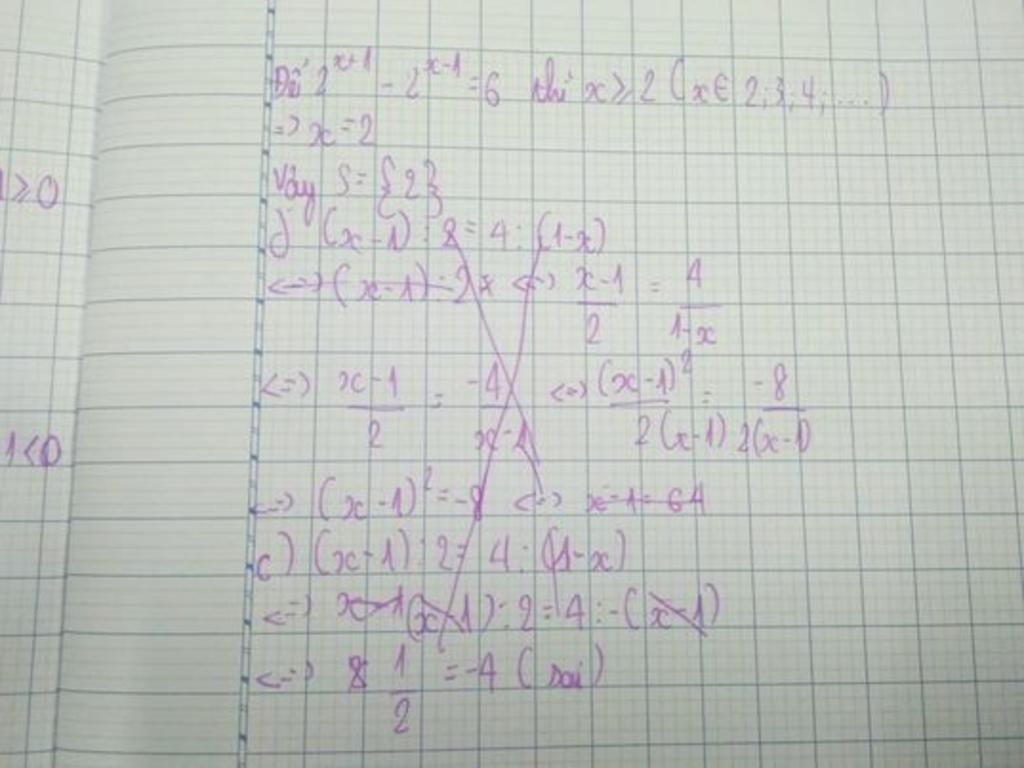 Để 2^{x+1} - 2^{x-1} = 6 thì x ≥ 2 (x ∈ 2; 3; 4; ....)
=> x = 2
Vậy S = {2}
c) (x-1) : 8 = 4 : (1-x)
<=> (x-1) - 2 <=> \frac{x-1}{2} = \frac{4}{1-x}
<=> \frac{x-1}{2} = \frac{-4}{x-1} <=> \frac{(x-1)^2}{2(x-1)} = \frac{-8}{2(x-1)}
<=> (x-1)^2 = -8 <=> x-1 = 64
c) (x-1) : 2 = 4 : (1-x)
<=> x-1 (x-1) : 2 = 4 : -(x-1)
<=> \frac{1}{2} = -4 (sai)
≥0
1<0